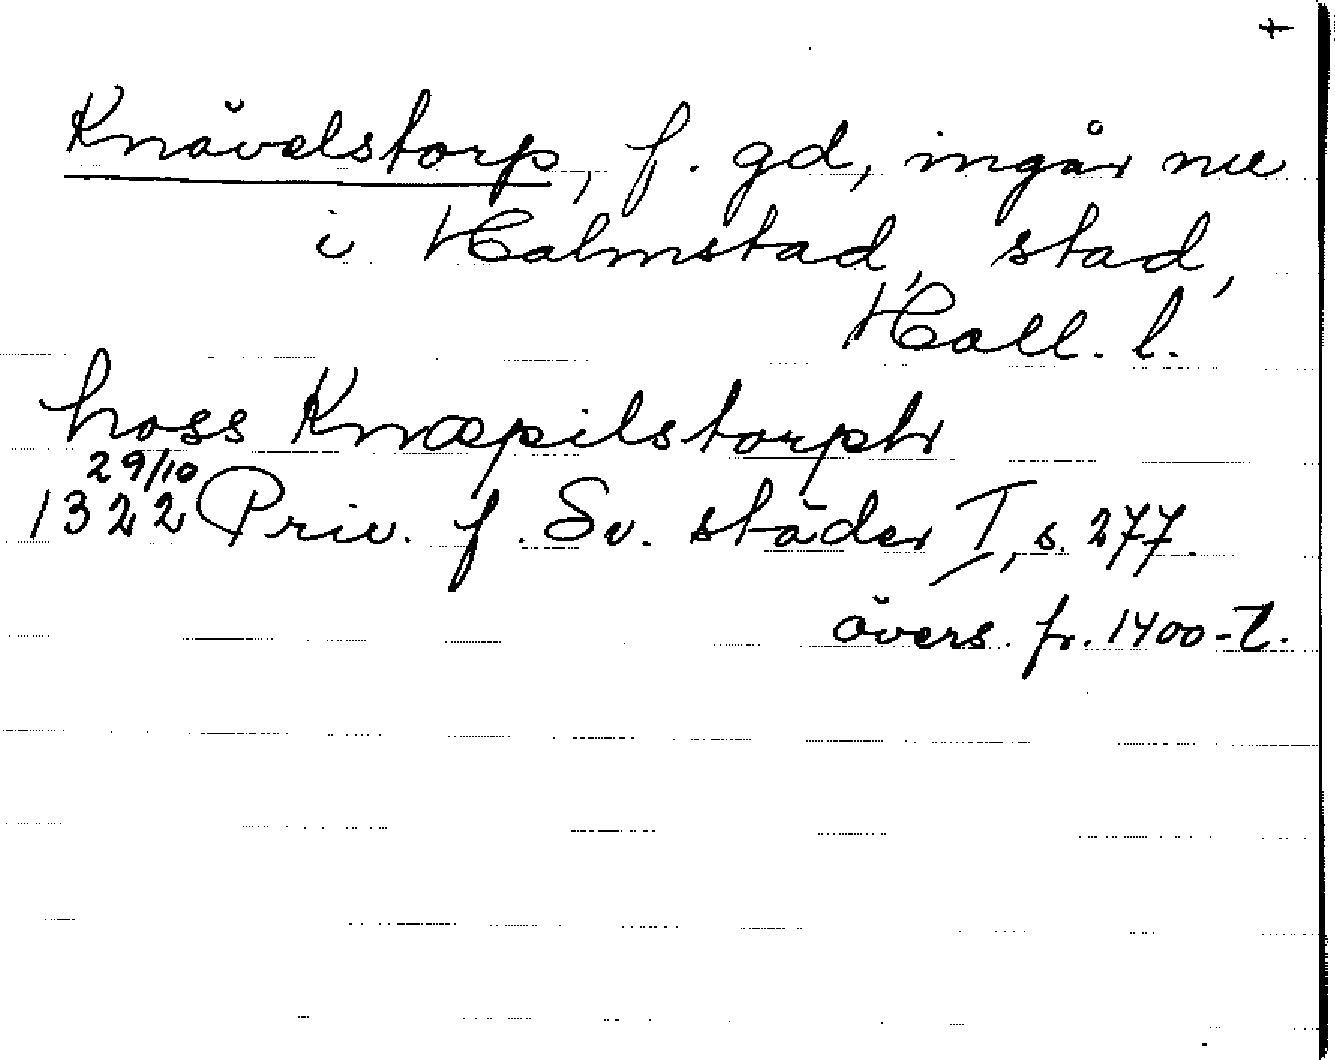 †
Knävelstorp, f. gd, ingår nu
i Halmstad, stad,
Hall. l.
hoss Knæpilstorph
29/10
1322 Priv. f. Sv. städer I, s. 277.
övers. fr. 1400-t.